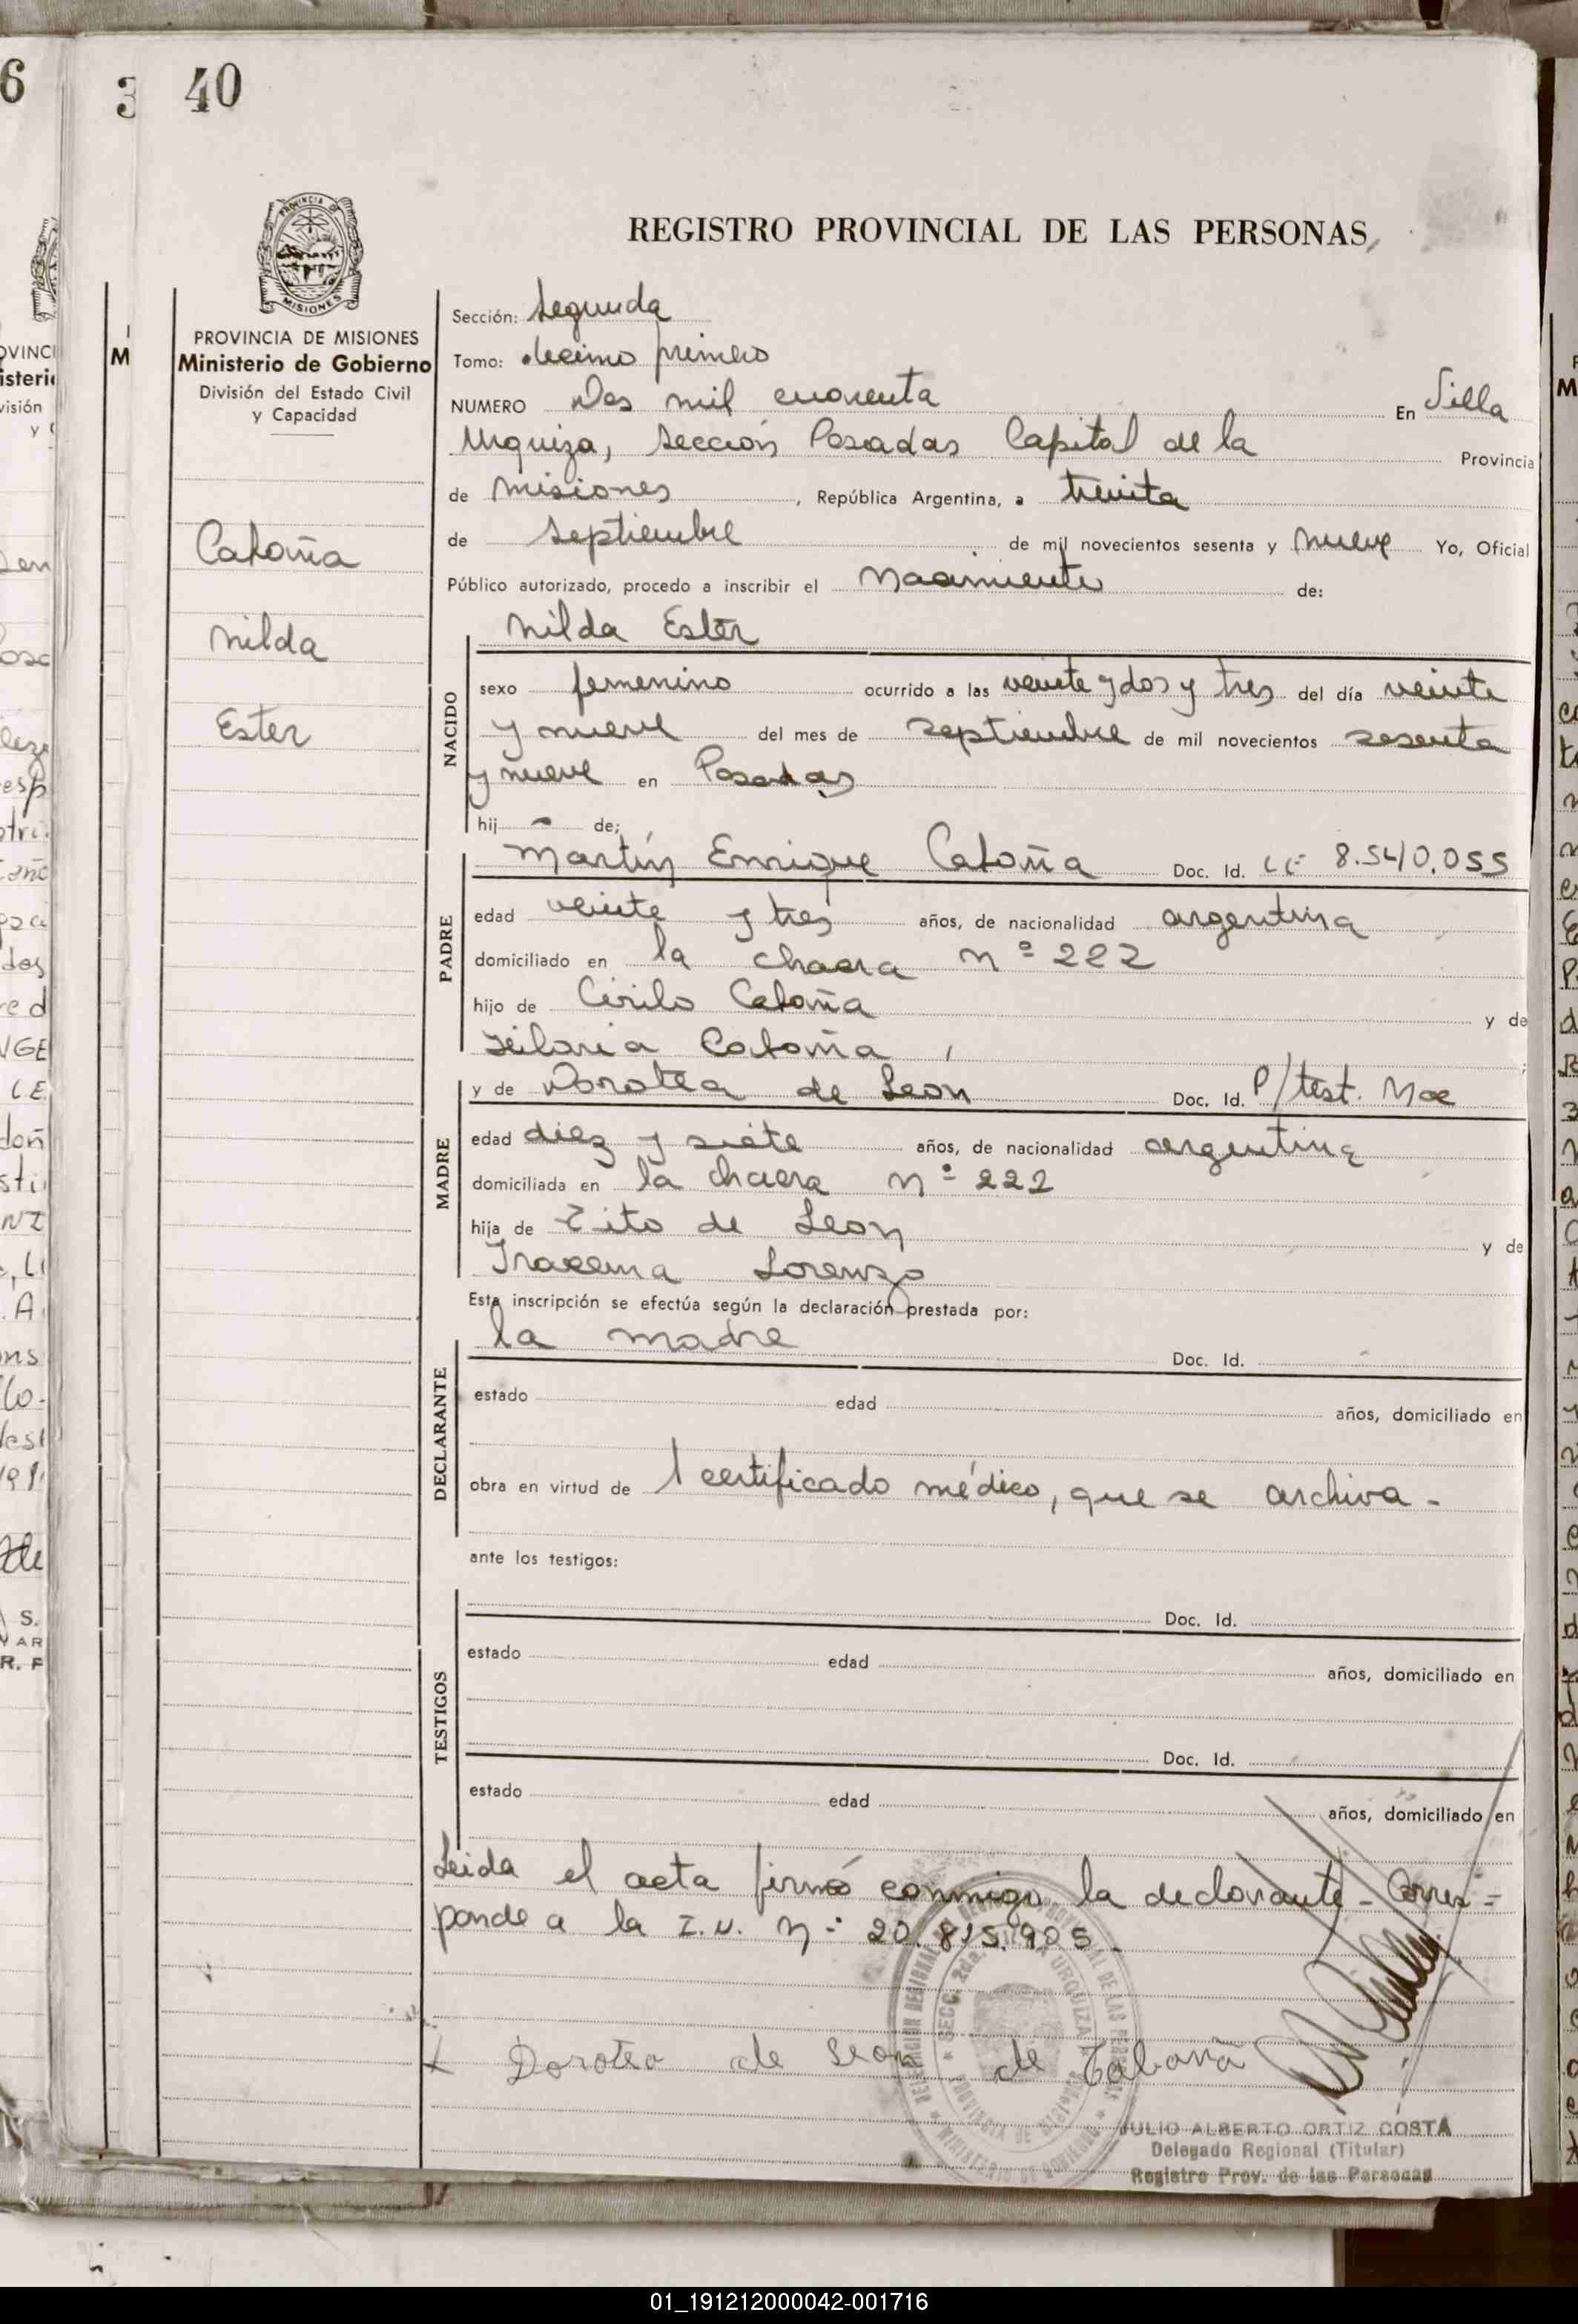 40
REGISTRO PROVINCIAL DE LAS PERSONAS
PROVINCIA DE MISIONES
Ministerio de Gobierno
División del Estado Civil
y Capacidad
Cabaña
Nilda
Ester
Sección: Segunda
Tomo: decimo primero
NUMERO Dos mil cuarenta En Villa
Urquiza, Sección Posadas Capital de la Provincia
de Misiones, República Argentina, a treinta
de septiembre de mil novecientos sesenta y nueve Yo, Oficial
Público autorizado, procedo a inscribir el Nacimiento de:
NACIDO
Nilda Ester
sexo femenino ocurrido a las veinte y dos y tres del día veinte
y nueve del mes de septiembre de mil novecientos sesenta
y nueve en Posadas
hij - de;
PADRE
Martín Enrique Cabaña Doc. Id. LE 8.540.055
edad veinte y tres años, de nacionalidad argentina
domiciliado en la chacra nº 222
hijo de Cirilo Cabaña y de
Hilaria Cabaña ;
MADRE
y de Dorotea de Leon Doc. Id. P/test. Nac
edad diez y siete años, de nacionalidad argentina
domiciliada en la chacra nº 222
hija de Tito de Leon y de
Iracema Lorenzo
Esta inscripción se efectúa según la declaración prestada por:
DECLARANTE
la madre Doc. Id.
estado edad años, domiciliado en
obra en virtud de 1 certificado médico, que se archiva -
ante los testigos:
TESTIGOS
Doc. Id.
estado edad años, domiciliado en
Doc. Id.
estado edad años, domiciliado en
Leida el acta firmó conmigo la declarante - Corres=
ponde a la I.N. Nº 20.815.905.
Dorotea de Leon de Cabaña
JULIO ALBERTO ORTIZ COSTA
Delegado Regional (Titular)
Registro Prov. de las Personas
01_191212000042-001716